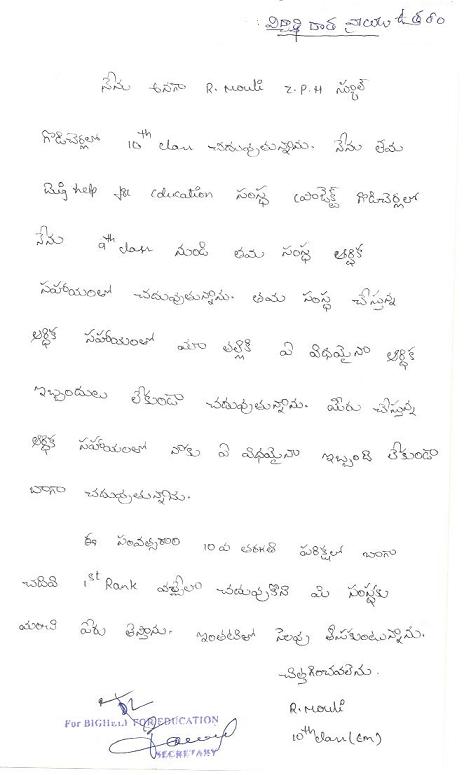 విద్యార్థి దాత వ్రాయు ఉత్తరం
నేను అనగా R. Mouli Z.P.H స్కూల్
గొడిచెర్లలో 10th class చదువుతున్నాను. నేను తమ
help for education సంస్థ గొడిచెర్లలో
నేను 9th class నుండి తమ సంస్థ ఆర్థిక
సహాయంలో చదువుతున్నాను. తమ సంస్థ చేస్తున్న
ఆర్థిక సహాయంలో మా తల్లికి ఏ విధమైనా ఆర్థిక
ఇబ్బందులు లేకుండా చదువుతున్నాను. మీరు చేస్తున్న
ఆర్థిక సహాయంతో నాకు ఏ విధమైనా ఇబ్బంది లేకుండా
బాగా చదువుతున్నాను.
ఈ సంవత్సరం 10 వ తరగతి పరిక్షలో బాగా
చదివి 1st Rank చదువుకొని మీ సంస్థకు
మంచి పేరు తెస్తాను. ఇంతటితో సెలవు తీసుకుంటున్నాను.
చిత్తగించవలెను.
R. Mouli
10th class (EM)
For BIGHELP FOR EDUCATION
SECRETARY